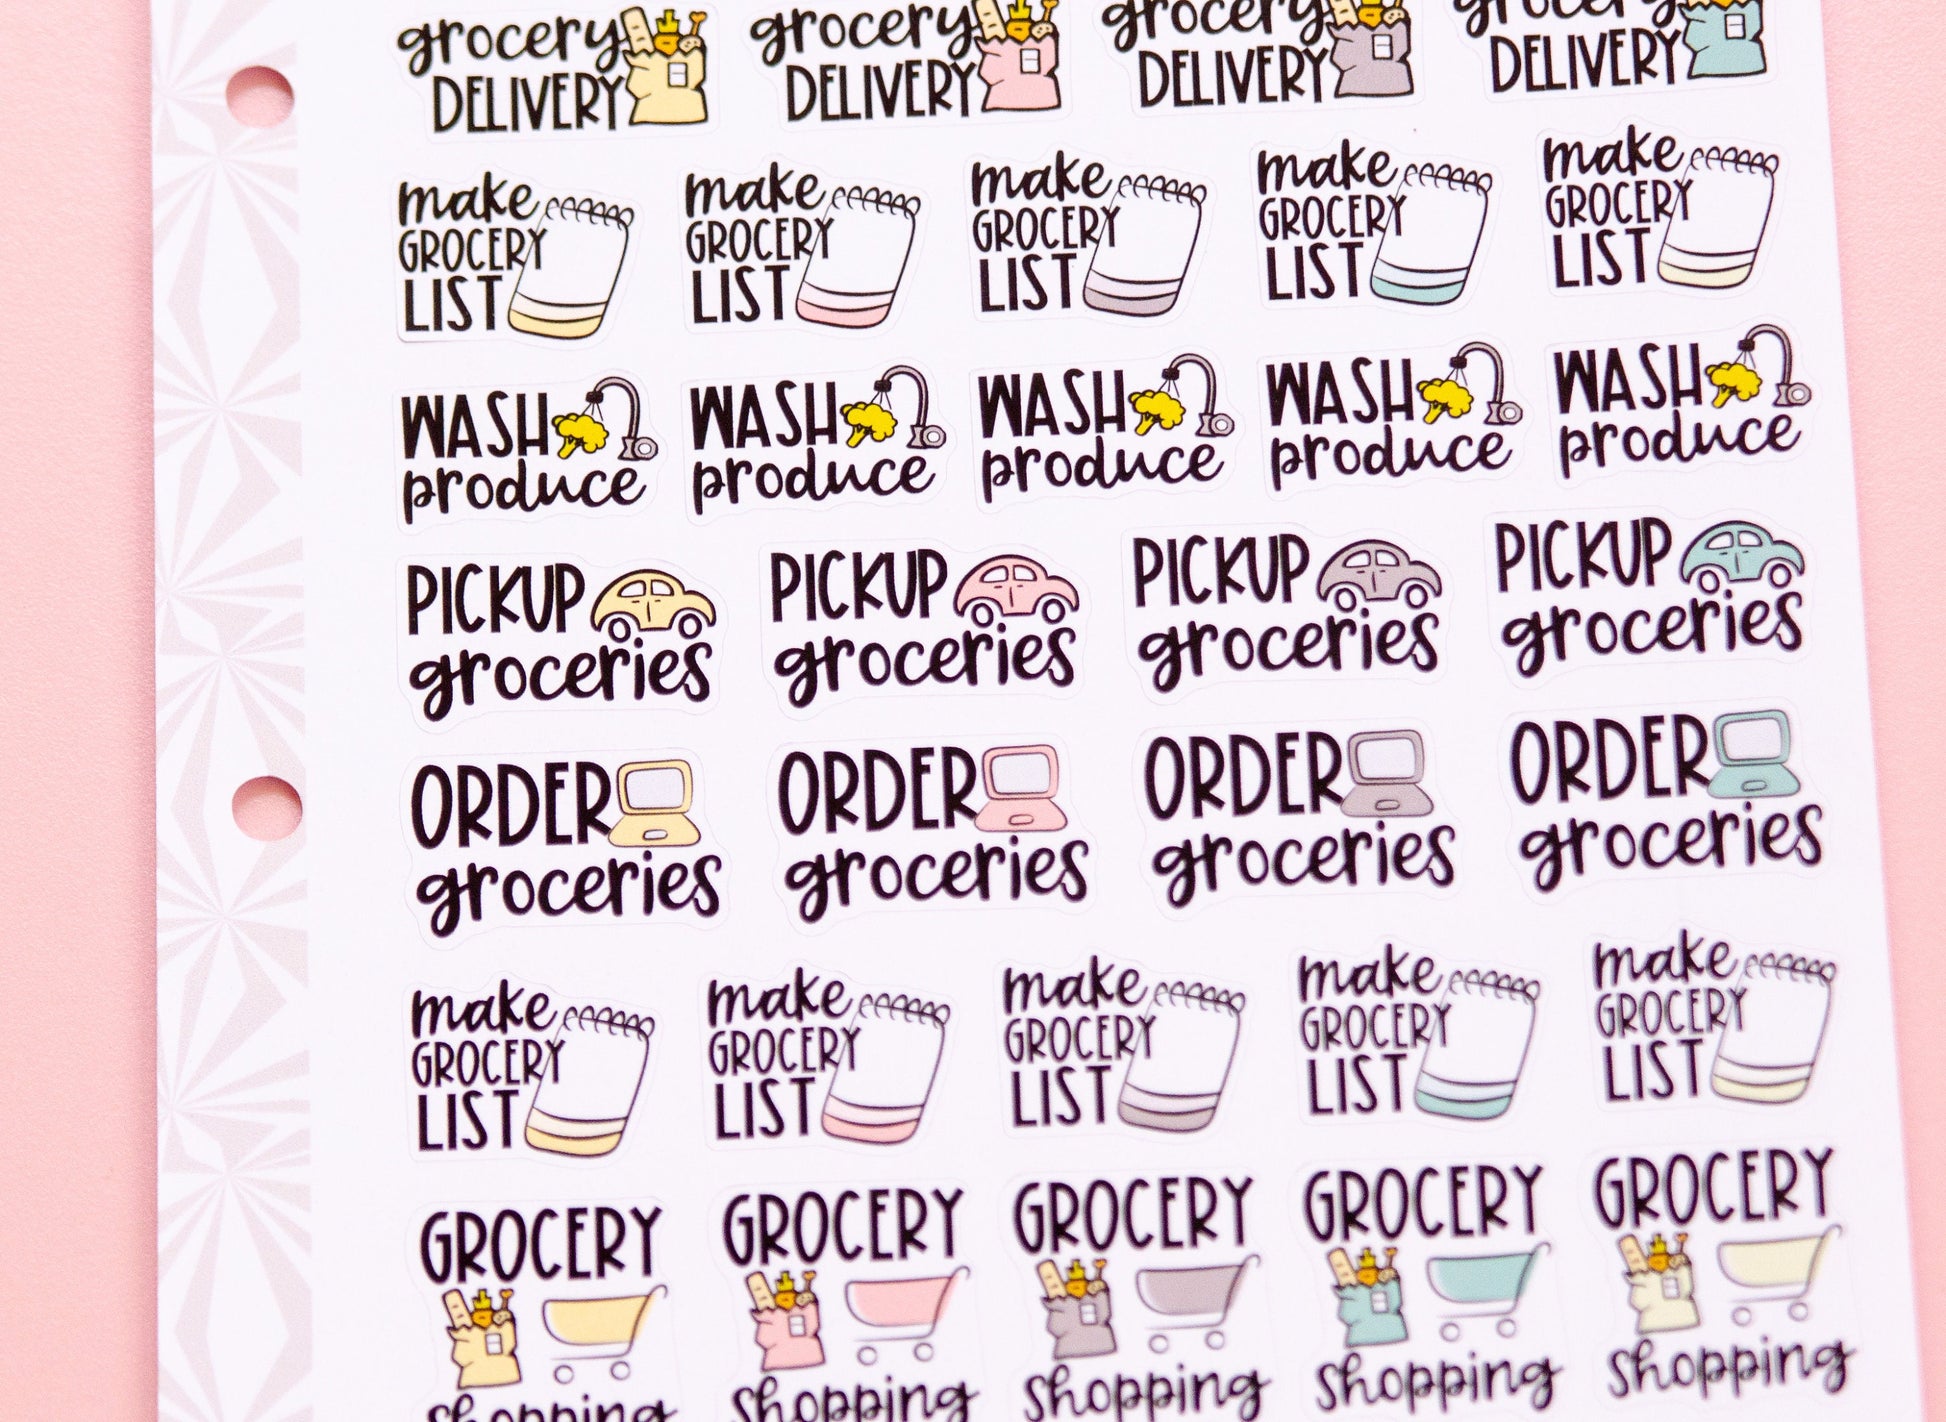 grocery grocery grocery grocery
DELIVERY DELIVERY DELIVERY DELIVERY
make make make make make
GROCERY GROCERY GROCERY GROCERY GROCERY
LIST LIST LIST LIST LIST
WASH WASH WASH WASH WASH
produce produce produce produce produce
PICKUP PICKUP PICKUP PICKUP
groceries groceries groceries groceries
ORDER ORDER ORDER ORDER
groceries groceries groceries groceries
make make make make make
GROCERY GROCERY GROCERY GROCERY GROCERY
LIST LIST LIST LIST LIST
GROCERY GROCERY GROCERY GROCERY GROCERY
shopping shopping shopping shopping shopping